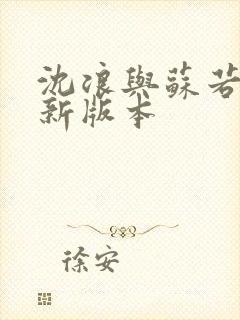 沈浪與蘇若
新版本
徐安